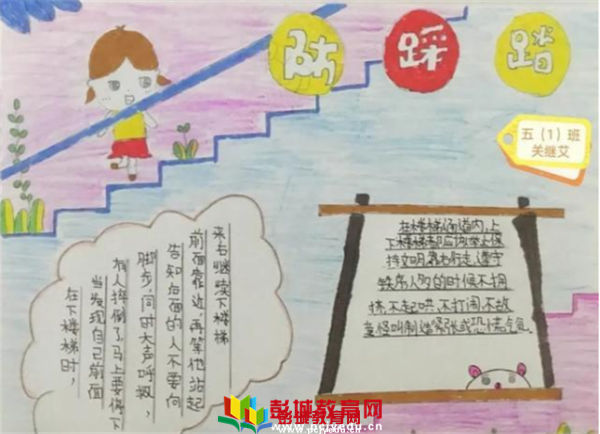 防踩踏
五（1）班
关继艾
在下楼梯时,
当发现自己前面
有人摔倒了,马上要停下
脚步,同时大声呼救,
告知后面的人不要向
前面靠近,再等他站起
来右继续下楼梯
在楼梯通道内,上
下楼梯都应该举止保
持文明,靠右行走,遵守
秩序,人多的时候不拥
挤,不起哄、不打闹、不故
意怪叫制造紧张或恐慌气氛
彭城教育网